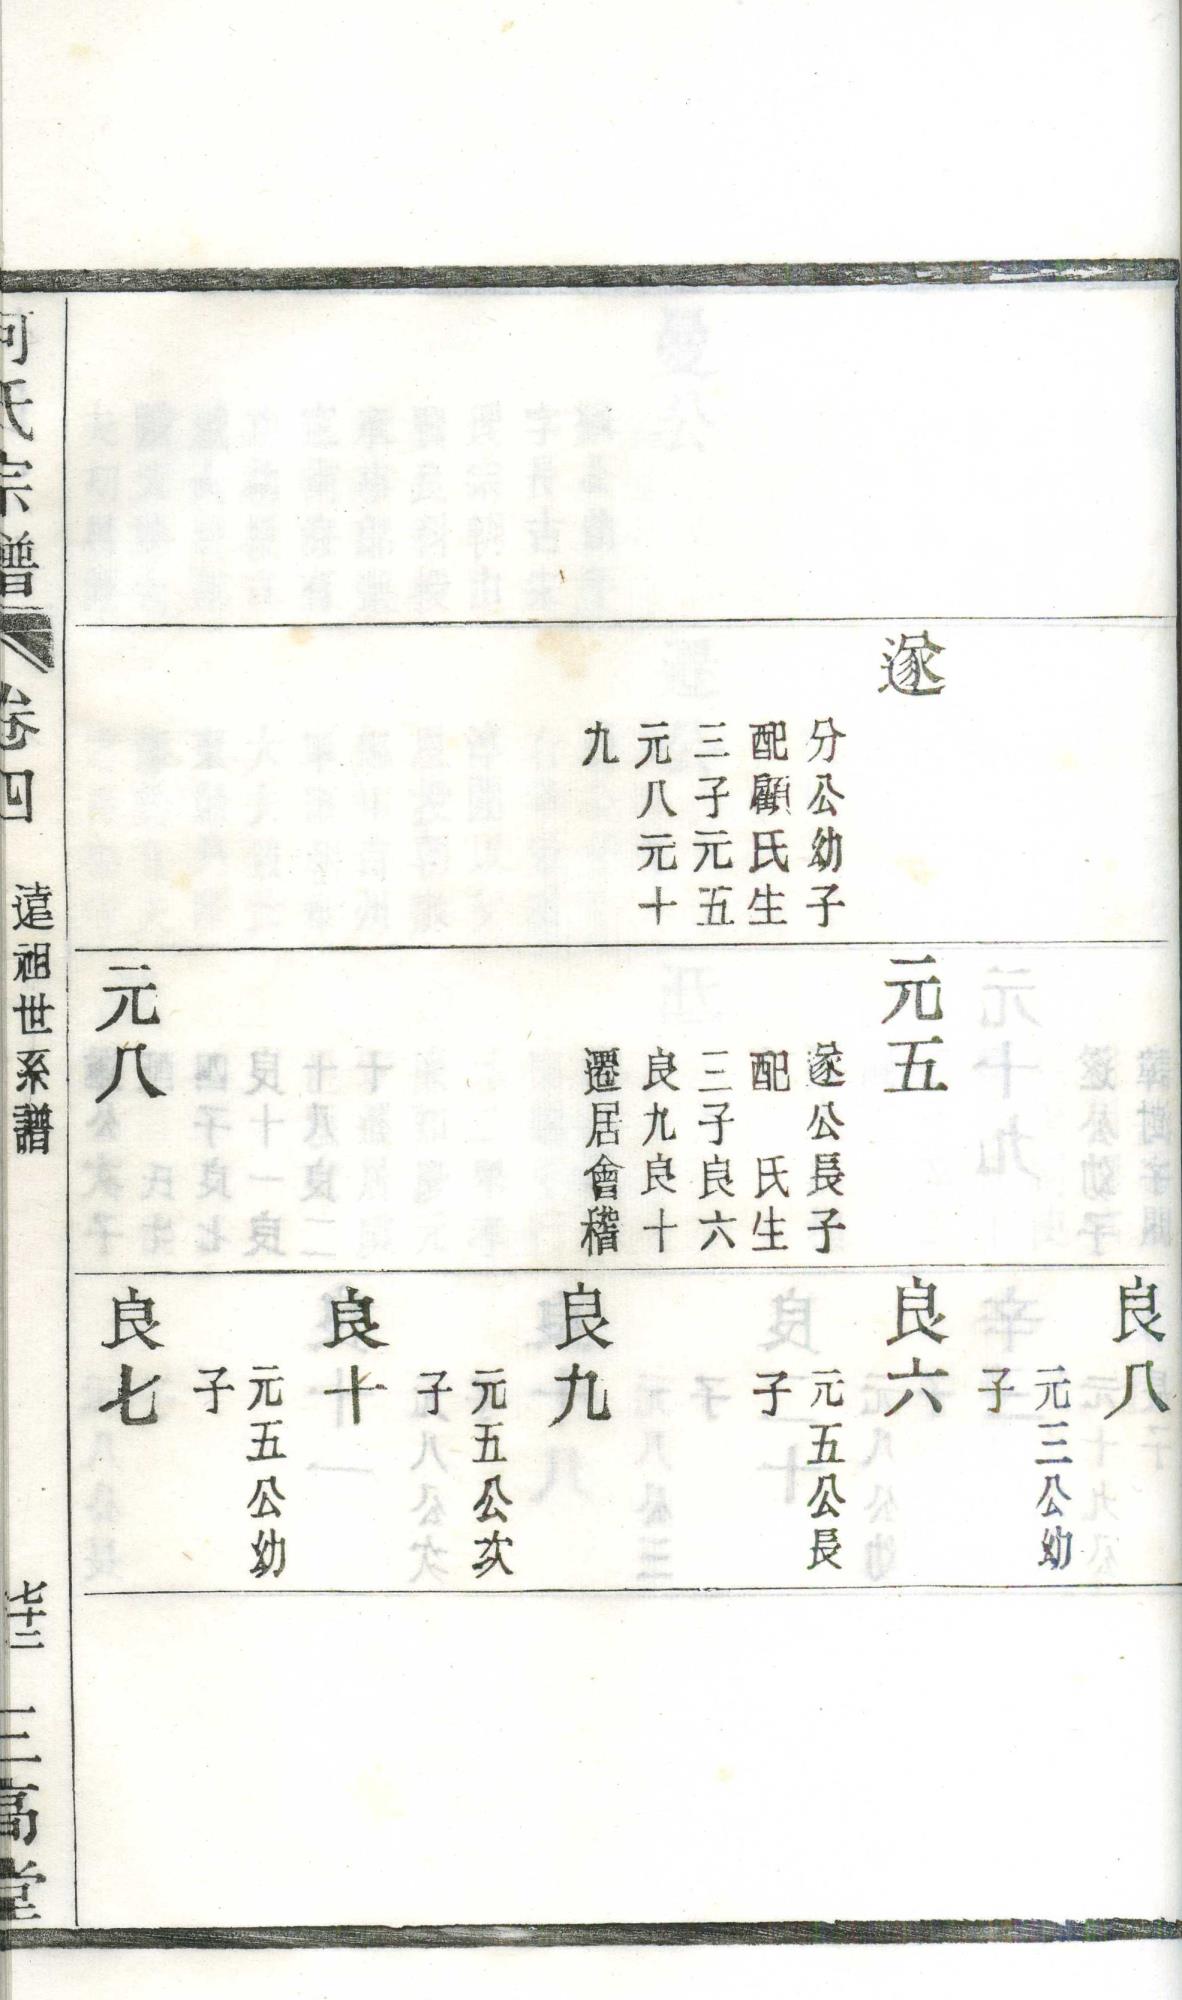 遂
分公幼子
配顧氏生
三子元五
元八元十
九
元五
遂公長子
配　氏生
三子良六
良九良十
遷居會稽
元八
良八
元三公幼
子
良六
元五公長
子
良九
元五公次
子
良十
元五公幼
子
良七
何氏宗譜
卷四
遠祖世系譜
七十二
三高堂